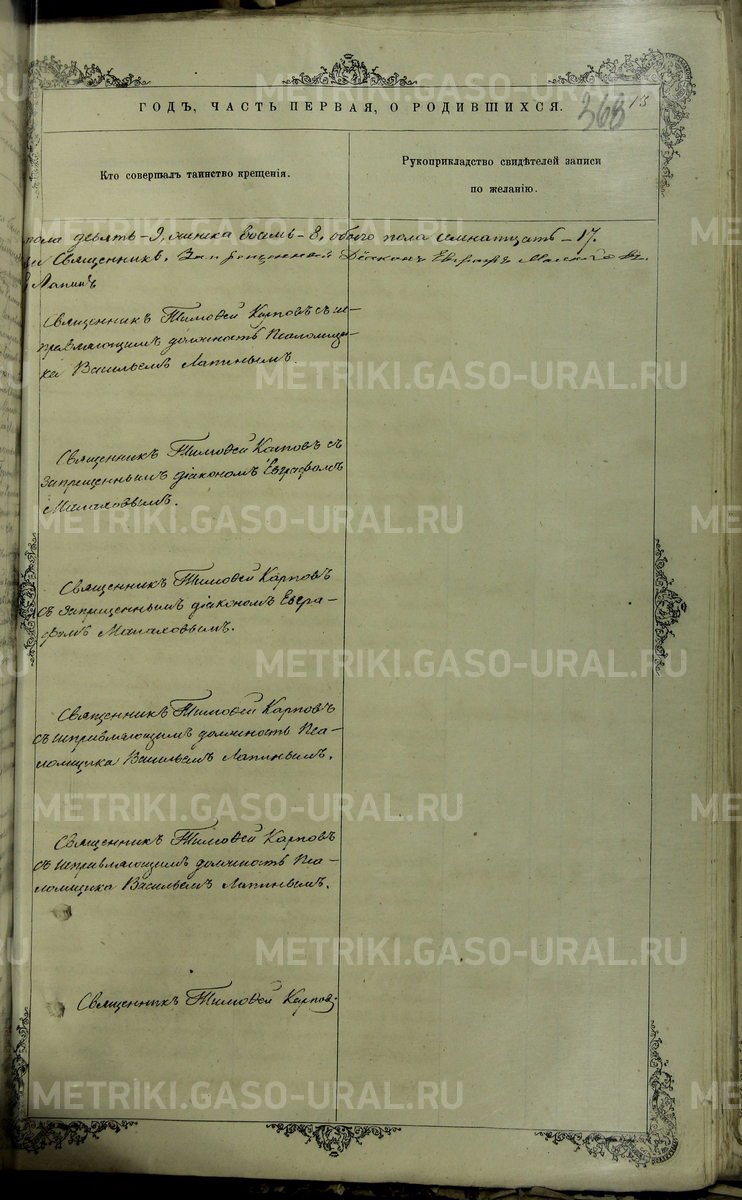 ГОДЪ, ЧАСТЬ ПЕРВАЯ, О РОДИВШИХСЯ.
368 13
Кто совершалъ таинство крещенія.
Рукоприкладство свидѣтелей записи
по желанію.
пола девять – 9, женска восемь – 8, обоего пола семнатцать – 17.
Священникъ, Запрещенный Діаконъ Евграфъ
Лапинъ
Священникъ Тимоѳей Карповъ съ ис-
правляющимъ должность Псаломщи-
ка Васильемъ Лапинымъ.
Священникъ Тимоѳей Карповъ съ
запрещеннымъ діакономъ Евграфомъ
Малаховымъ.
Священникъ Тимоѳей Карповъ
съ запрещеннымъ діакономъ Евгра-
фомъ Малаховымъ.
Священникъ Тимоѳей Карповъ
съ исправляющимъ должность Пса-
ломщика Васильемъ Лапинымъ.
Священникъ Тимоѳей Карповъ
съ исправляющимъ должность Пса-
ломщика Васильемъ Лапинымъ.
Священникъ Тимоѳей Карповъ.
METRIKI.GASO-URAL.RU